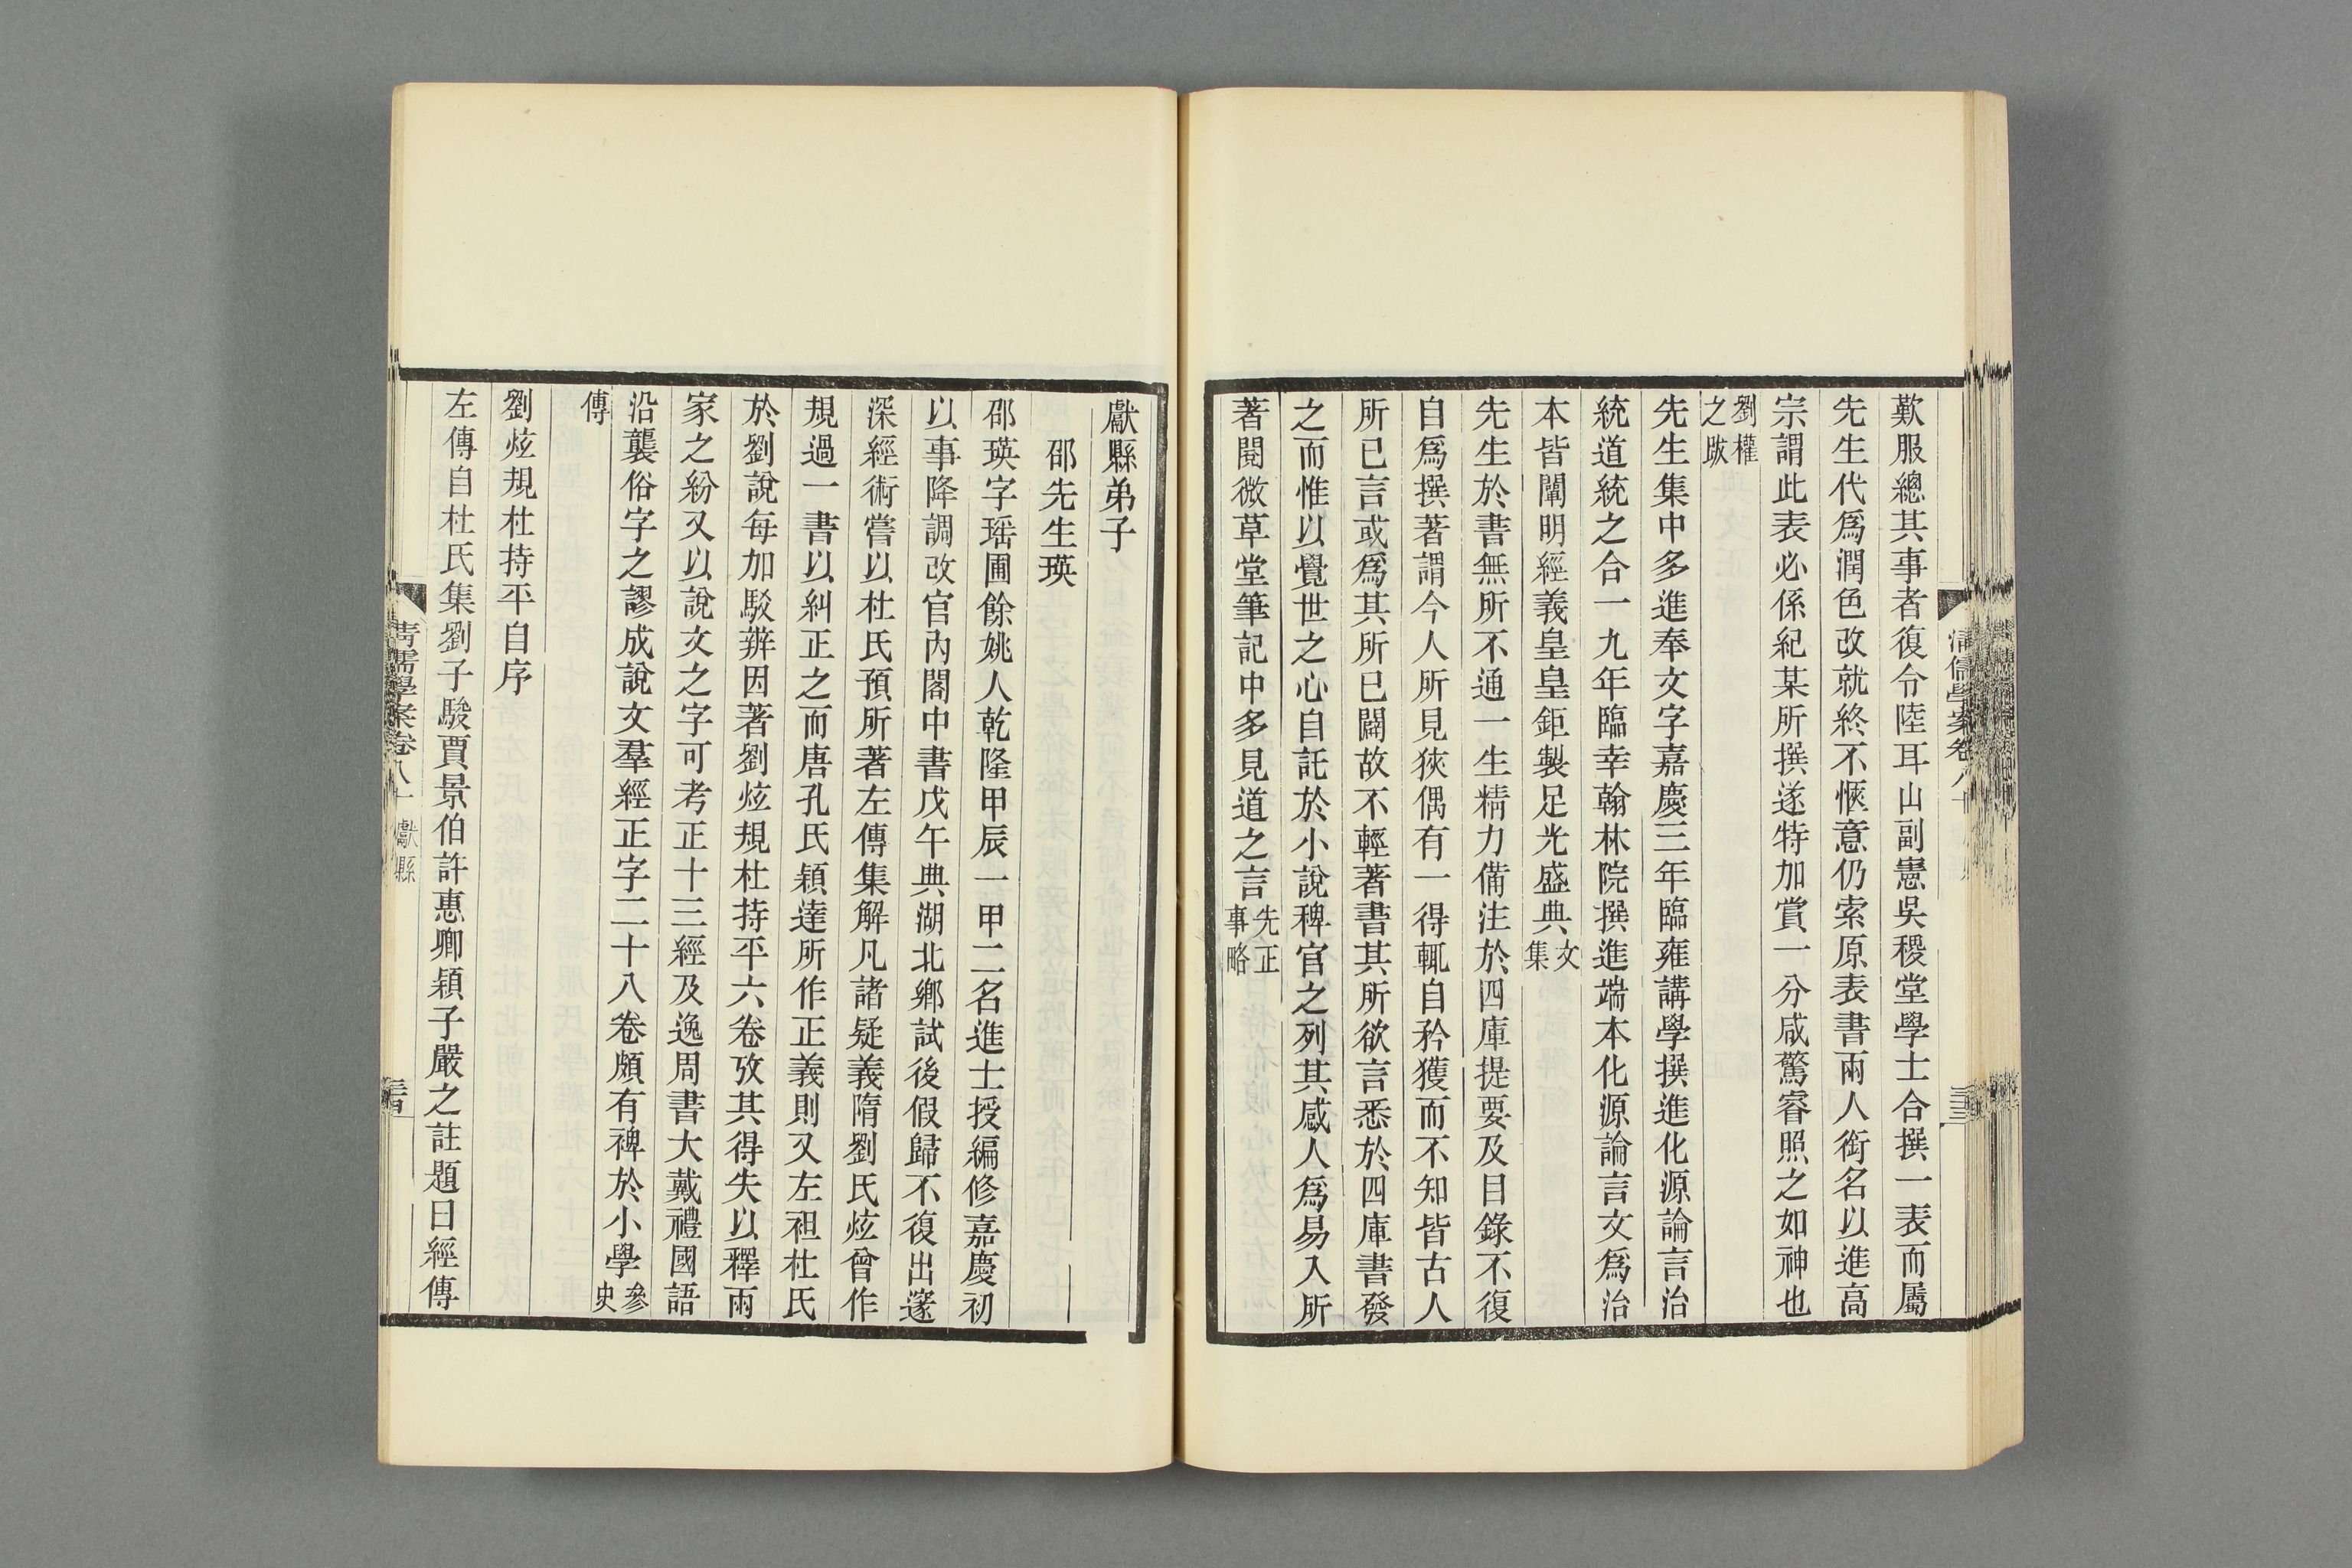 歎服總其事者復令陸耳山副憲吳稷堂學士合撰一表而屬
先生代爲潤色改就終不愜意仍索原表書兩人銜名以進高
宗謂此表必係紀某所撰遂特加賞一分咸驚睿照之如神也
劉權
之跋
先生集中多進奉文字嘉慶三年臨雍講學撰進化源論言治
統道統之合一九年臨幸翰林院撰進端本化源論言文爲治
本皆闡明經義皇皇鉅製足光盛典文集
先生於書無所不通一生精力備注於四庫提要及目錄不復
自爲撰著謂今人所見狹偶有一得輒自矜獲而不知皆古人
所已言或爲其所已闢故不輕著書其所欲言悉於四庫書發
之而惟以覺世之心自託於小說稗官之列其感人爲易入所
著閱微草堂筆記中多見道之言先正事略
獻縣弟子
邵先生瑛
邵瑛字瑶圃餘姚人乾隆甲辰一甲二名進士授編修嘉慶初
以事降調改官內閣中書戊午典湖北鄉試後假歸不復出邃
深經術嘗以杜氏預所著左傳集解凡諸疑義隋劉氏炫曾作
規過一書以糾正之而唐孔氏穎達所作正義則又左袒杜氏
於劉說每加駁辨因著劉炫規杜持平六卷攷其得失以釋兩
家之紛又以說文之字可考正十三經及逸周書大戴禮國語
沿襲俗字之謬成說文羣經正字二十八卷頗有裨於小學參史
傳
劉炫規杜持平自序
左傳自杜氏集劉子駿賈景伯許惠卿穎子嚴之註題曰經傳
清儒學案卷八十 獻縣